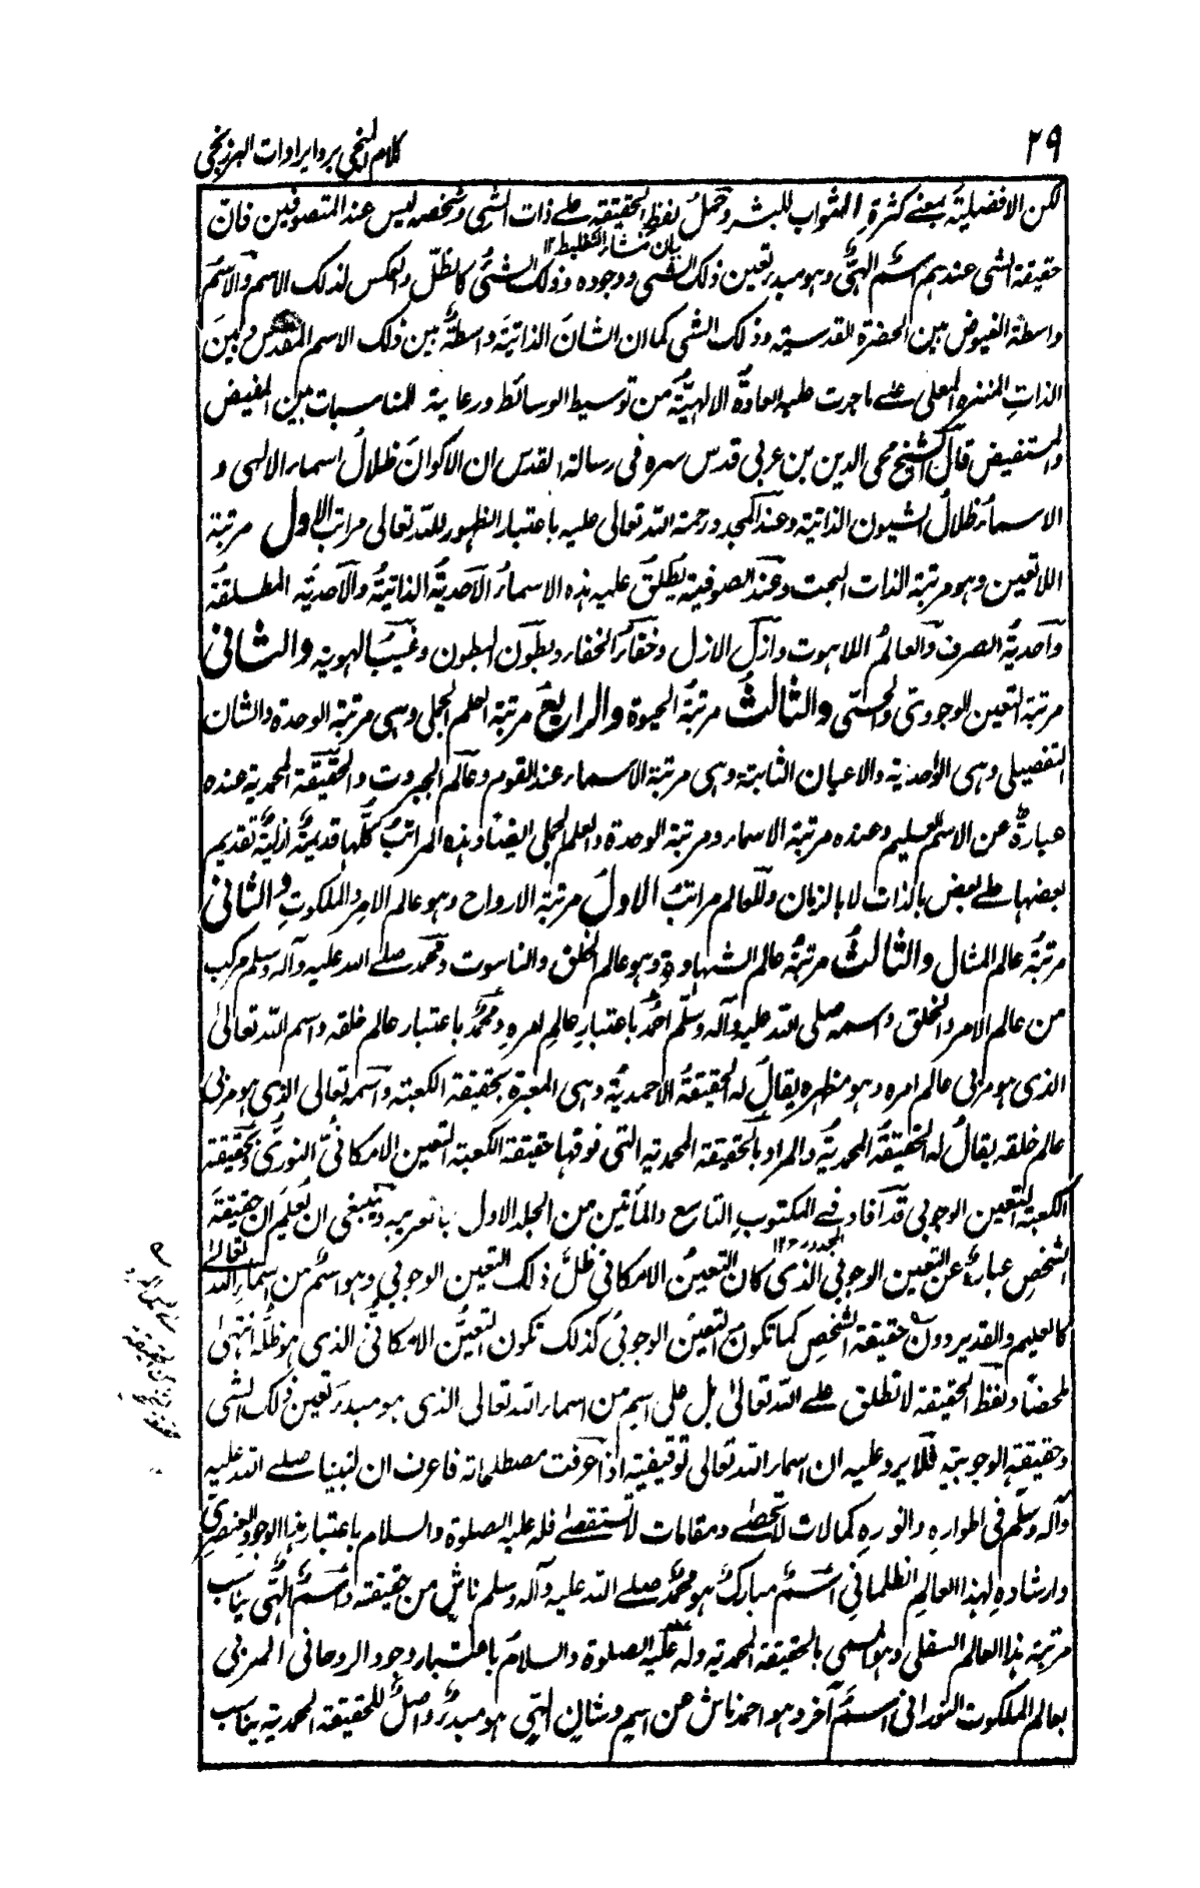 ٢٩
كلام المنجي برد ايرادات البرزنجي
لكن الافضلية بمعنى كثرة الثواب للبشر وحمل لفظ الحقيقة على ذات الشي وشخصه ليس عند المتصوفين فان
بيان منشاء التغليط ١٢
حقيقة الشي عندهم اسم الهي وهو مبدء تعين ذلك الشي ووجوده وذلك الشئ كالظل والعكس لذلك الاسم والاسم
واسطة الفيوض بين الحضرة القدسية وذلك الشي كما ان الشان الذاتية واسطة بين ذلك الاسم المقدس وبين
الذات المنزه المعلى على ما جرت عليه العادة الالهية من توسيط الوسائط ورعاية للمناسبات بين المفيض
والمستفيض قال الشيخ محي الدين بن عربي قدس سره في رسالة القدس ان الاكوان ظلال اسماء الالهى و
الاسماء ظلال الشيون الذاتية وعند المجدد رحمة الله تعالى عليه باعتبار الظهور لله تعالى مراتب الاول مرتبة
اللاتعين وهو مرتبة الذات البحت وعند الصوفية يطلق عليه هذه الاسماء الاحدية الذاتية والاحدية المطلقة
واحدية الصرف والعالم اللاهوت وازل الازل وخفاء الخفاء وبطون البطون وغيب الهوية والثاني
مرتبة التعين الوجودي والحبي والثالث مرتبة الحيوة والرابع مرتبة العلم الجملي وهى مرتبة الوحدة والشان
التفصيلي وهى الواحدية والاعيان الثابتة وهى مرتبة الاسماء عند القوم وعالم الجبروت والحقيقة المحمدية عنده
عبارة عن الاسم العليم وعنده مرتبة الاسماء ومرتبة الوحدة والعلم الجملي ايضا وهذه المراتب كلها قديمة ازلية تقديم
بعضها على بعض بالذات لا بالزمان وللعالم مراتب الاول مرتبة الارواح وهو عالم الامر والملكوت والثاني
مرتبة عالم المثال والثالث مرتبة عالم الشهادة وهو عالم الخلق والناسوت ومحمد صلى الله عليه وآله وسلم مركب
من عالم الامر والخلق واسمه صلى الله عليه وآله وسلم احمد باعتبار عالم امره ومحمد باعتبار عالم خلقه واسم الله تعالى
الذى هو مربي عالم امره وهو مظهره يقال له الحقيقة الاحمدية وهى المعبرة بحقيقة الكعبة واسمه تعالى الذى هو مربى
عالم خلقه يقال له الحقيقة المحمدية والمراد بالحقيقة المحمدية التى فوقها حقيقة الكعبة التعين الامكاني النوري وبحقيقة
الكعبة التعين الوجوبي قد افاد في المكتوب التاسع والمأتين من الجلد الاول بالعربية وينبغي ان يعلم ان حقيقة
الشخص عبارة عن التعين الوجوبي الذى كان التعين الامكاني ظل ذلك التعين الوجوبي وهو اسم من اسماء الله تعالى
كالعليم والقدير دون حقيقة الشخص كما تكون التعين الوجوبي كذلك تكون التعين الامكاني الذى هو ظله انتهى
ملخصا ولفظ الحقيقة لا تطلق على الله تعالى بل على اسم من اسماء الله تعالى الذى هو مبدء تعين ذلك الشى
وحقيقته الوجوبية فلا يرد عليه ان اسماء الله تعالى توقيفية اذا عرفت مصطلحاته فاعرف ان لنبينا صلى الله عليه
وآله وسلم في اطواره وانواره كمالات لا تحصى ومقامات لا تستقصى فله عليه الصلوة والسلام باعتبار هذا الوجود العنصري
وارشاده لهذا العالم الظلماني اسم مبارك هو محمد صلى الله عليه وآله وسلم ناش من حقيقته واسم الهي يناسب
مرتبة هذا العالم السفلي وهو المسمى بالحقيقة المحمدية وله عليه الصلوة والسلام باعتبار وجود الروحاني المربي
بعالم الملكوت النوراني اسم آخر وهو احمد ناش عن اسم وشان الهي هو مبدء واصل للحقيقة المحمدية يناسب